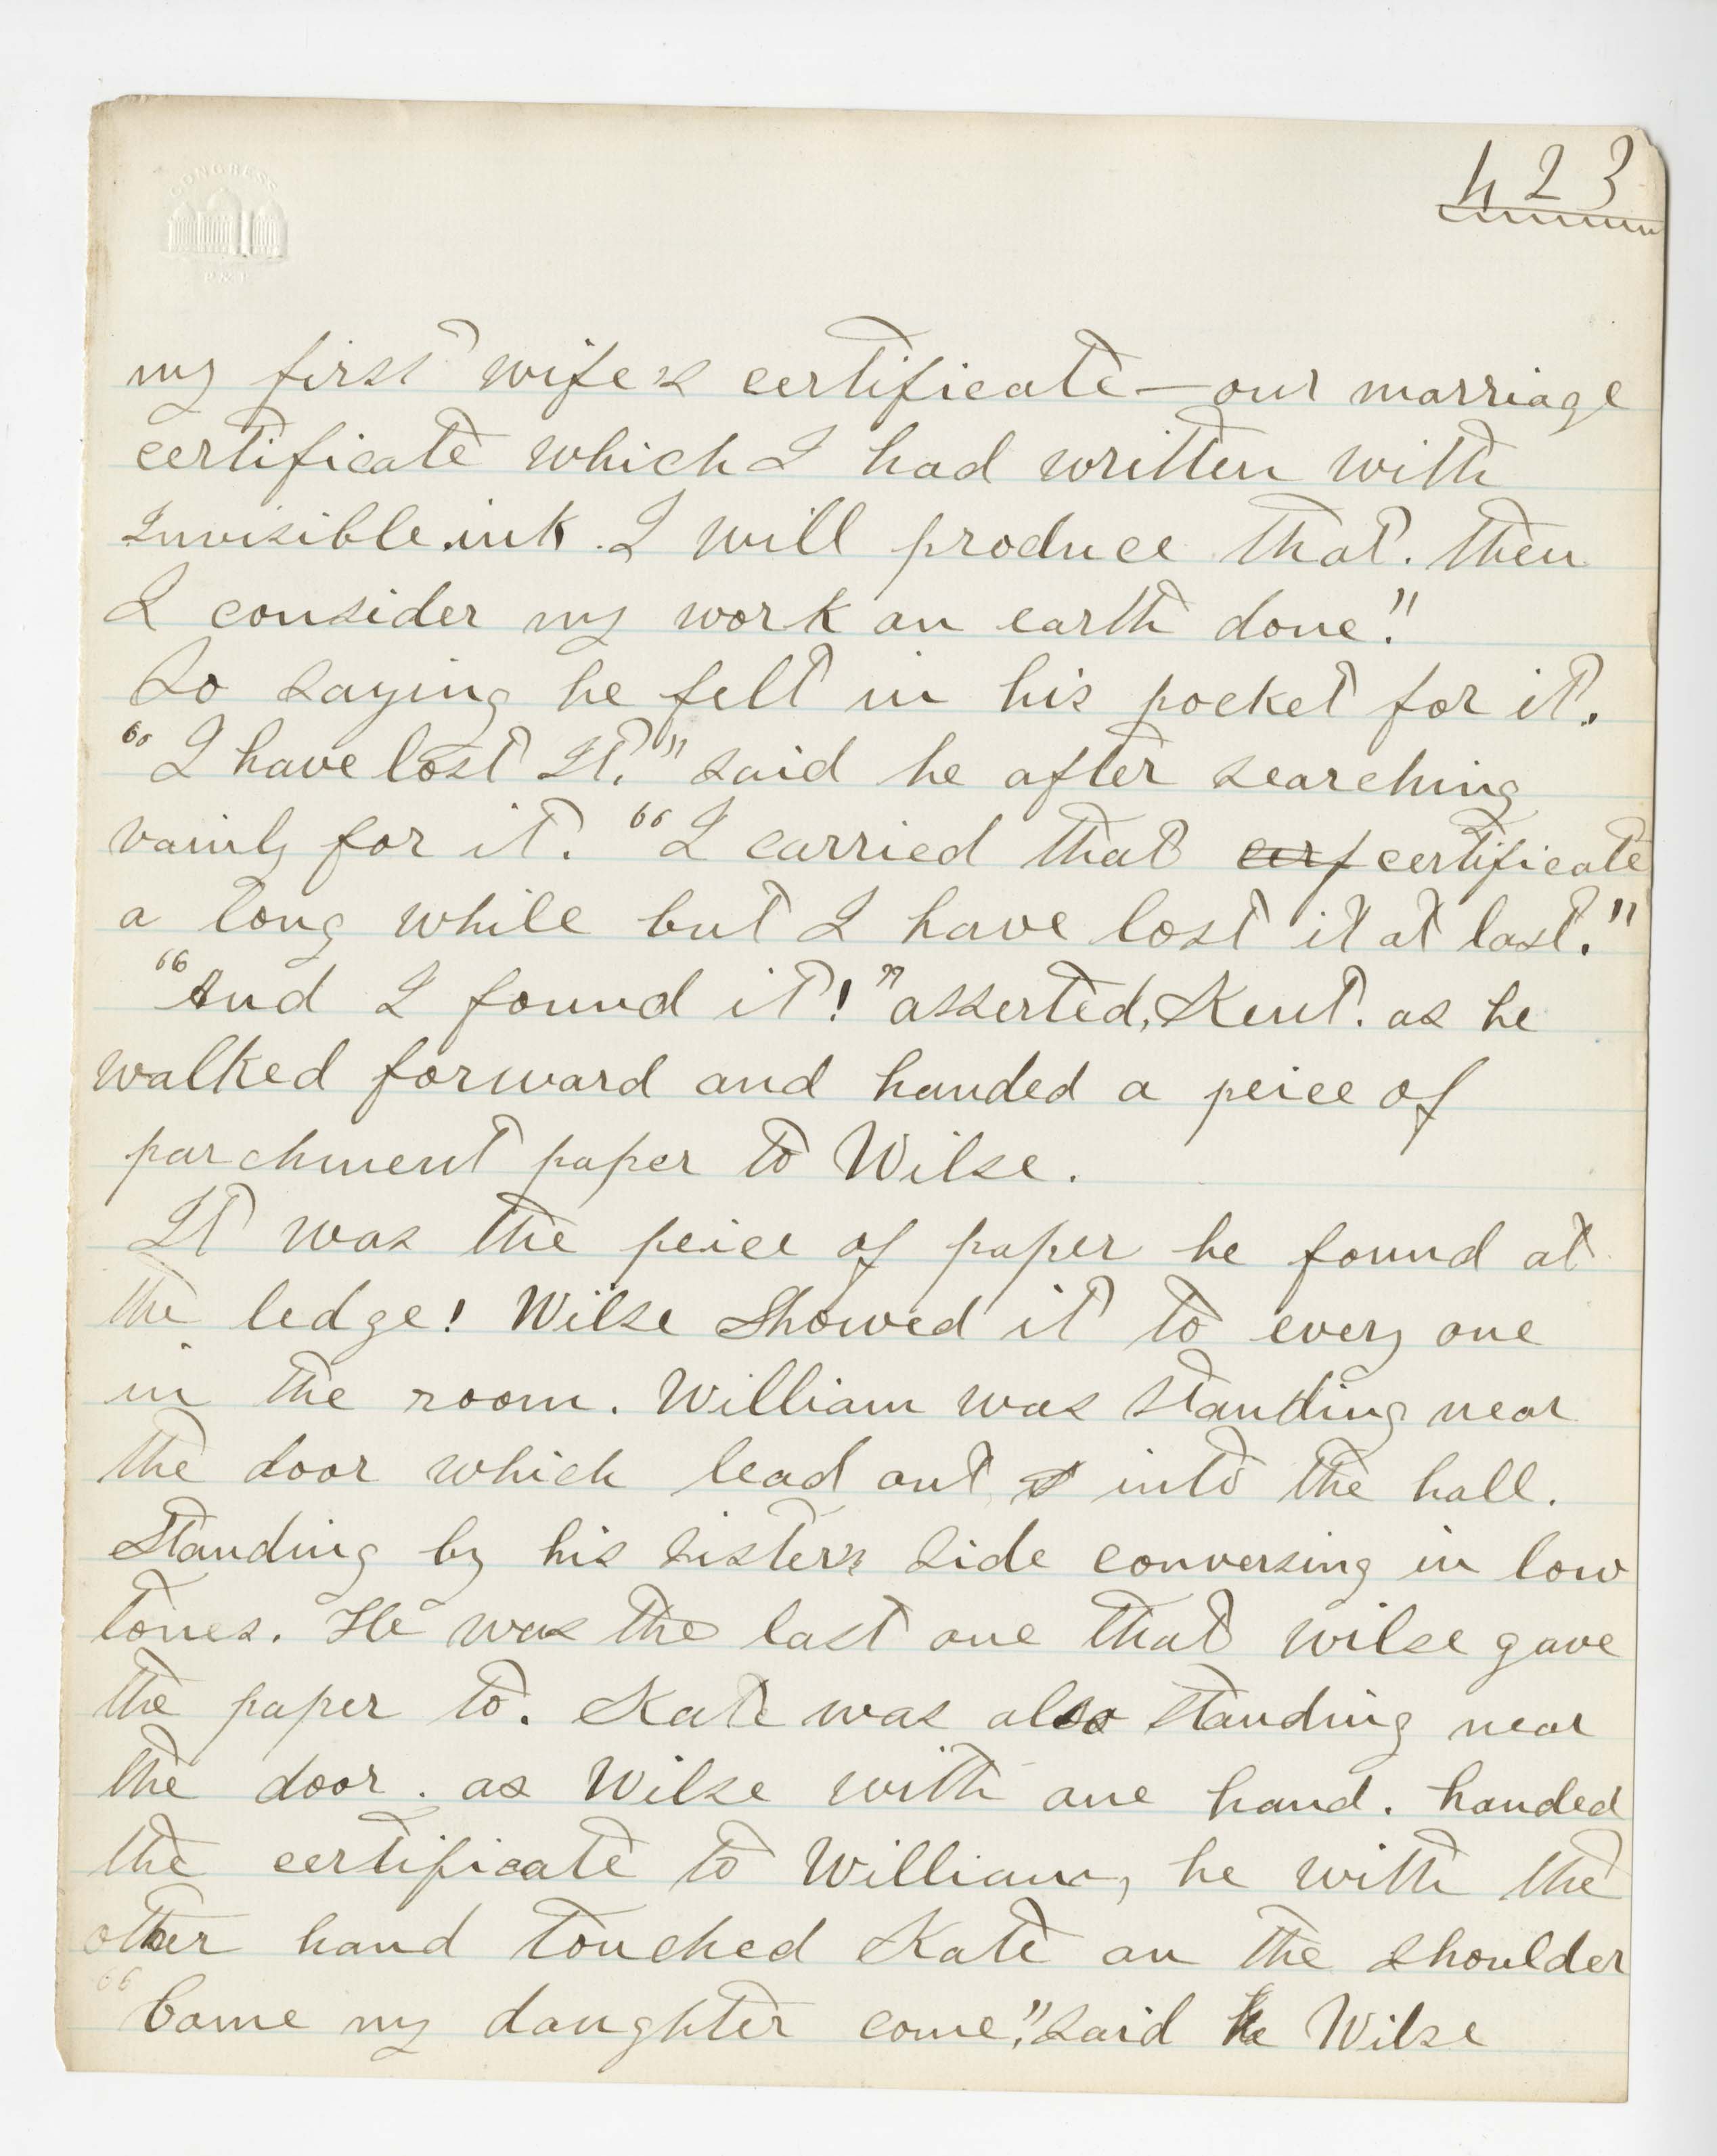 CONGRESS
P & P
423
my first wifes certificate—our marriage
certificate which I had written with
Invisible.ink. I will produce that. then
I consider my work on earth done."
So saying he felt in his pocket for it.
"I have lost It." said he after searching
vainly for it. "I carried that cerf certificate
a long while but I have lost it at last."
"And I found it!" asserted, Kent. as he
walked forward and handed a peice of
parchment paper to Wilse.
It was the peice of paper he found at
the ledge! Wilse Showed it to every one
in the room. William was standing near
the door which lead out t into the hall.
Standing by his sisters side conversing in low
tones. He was the last one that wilse gave
the paper to. Kate was also standing near
the door. as Wilse with one hand. handed
the certificate to William, he with the
other hand touched Kate on the shoulder
"Come my daughter come," said he Wilse